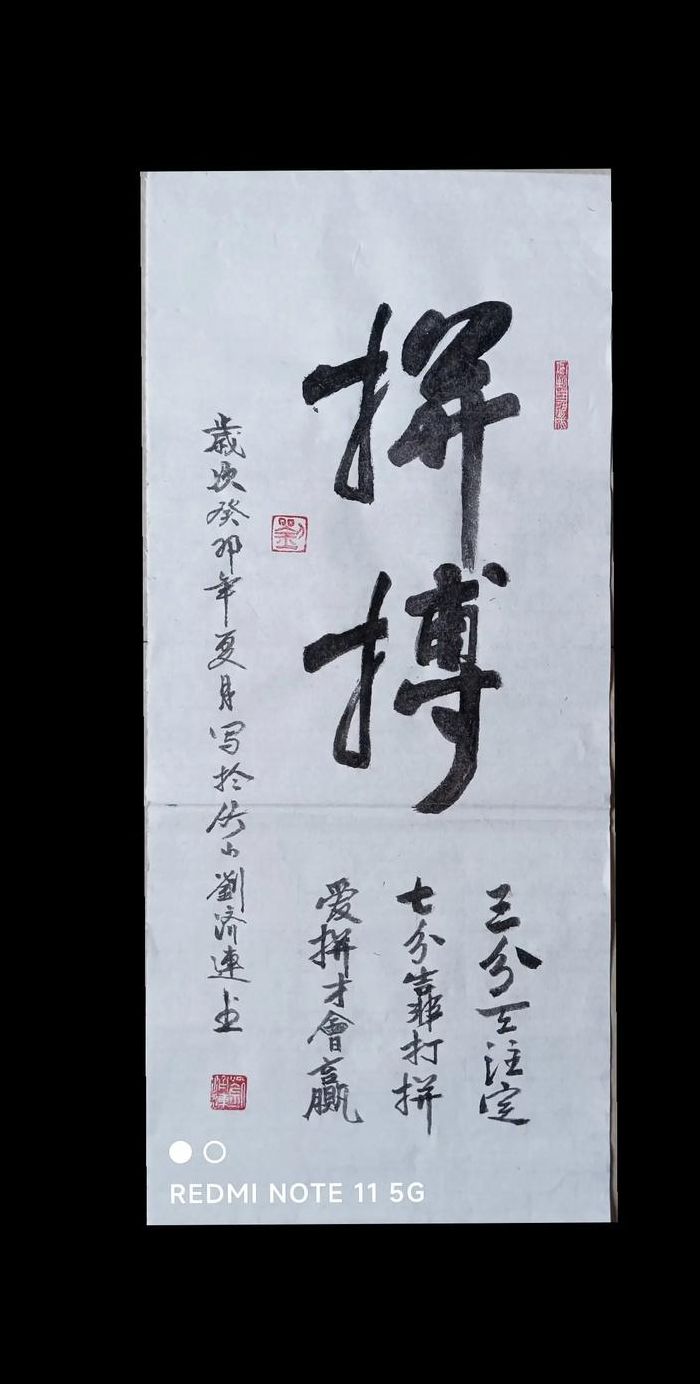 拼搏
三分天注定
七分靠打拼
爱拼才會贏
歲次癸卯年夏月写於佚山劉濟連书
劉
REDMI NOTE 11 5G